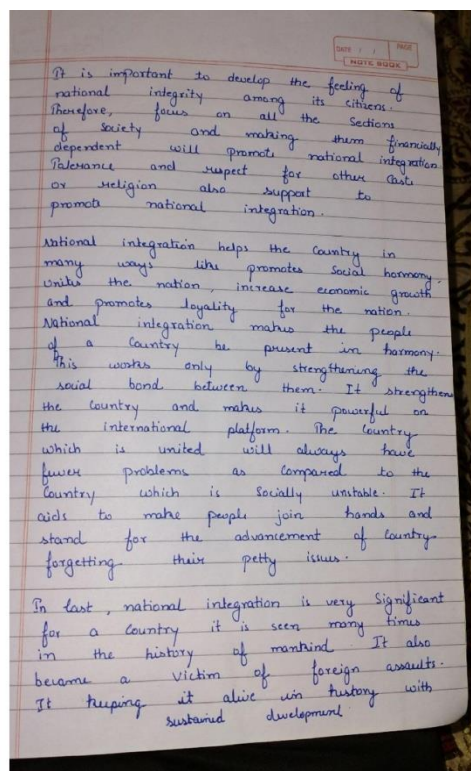 DATE / / PAGE
NOTE BOOK
It is important to develop the feeling of
national integrity among its citizens.
Therefore, focus on all the Sections
of society and making them financially
dependent will promote national integration
Tolerance and respect for other Caste
or religion also support to
promote national integration.
National integration helps the Country in
many ways like promotes Social hormony.
unites the nation, increase economic growth
and promotes loyality for the nation.
National integration makes the people
of a Country be present in harmony.
This works only by strengthening the
social bond between them. It strengthens
the Country and makes it powerful on
the international platform. The Country
which is united will always have
fewer problems as Compared to the
Country which is Socially unstable. It
aids to make people join hands and
stand for the advancement of Country
forgetting their petty issues.
In last, national integration is very Significant
for a Country it is seen many times
in the history of mankind It also
became a victim of foreign assaults.
It keeping it alive in history with
sustained development